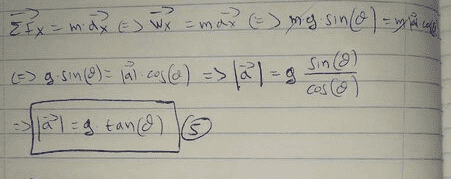 Σ⃗Fx = m a⃗x (=> W⃗x = m a⃗x (=> m g · sin(θ) = m |a⃗| cos(θ)
(=> g · sin(θ) = |a⃗| · cos(θ) => |a⃗| = g sin(θ)/cos(θ)
=> |a⃗| = g tan(θ) (5)